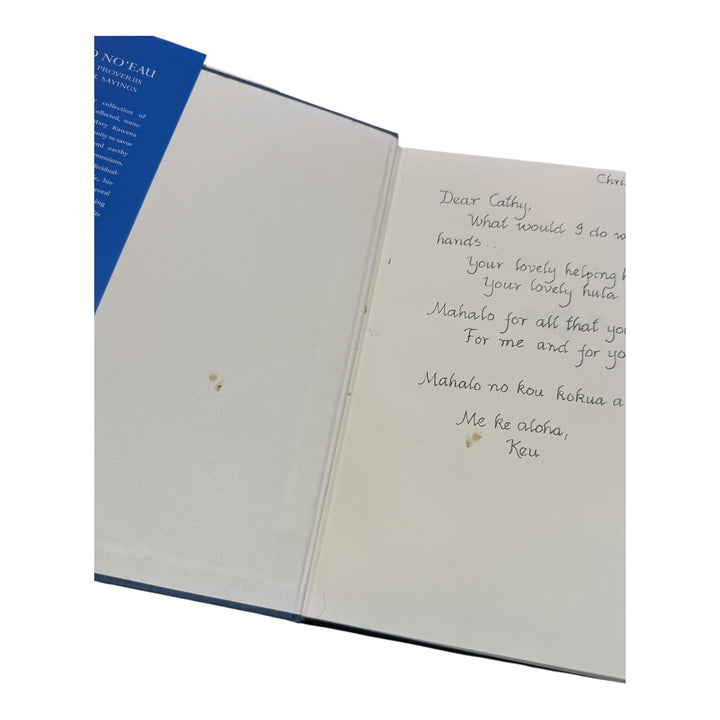 NO'EAU
PROVERBS
SAYINGS
collection of
collected, trans-
Kawena
to savor
and earthy
individual-
Dear Cathy,
What would I do
hands...
Your lovely helping
Your lovely hula
Mahalo for all that
For me and for
Mahalo no kou kokua a
Me ke aloha,
Keu